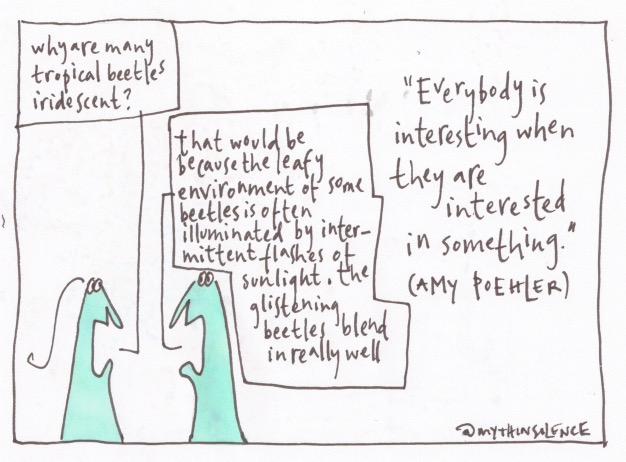 why are many
tropical beetles
iridescent?
that would be
because the leafy
environment of some
beetles is often
illuminated by inter-
mittent flashes of
sunlight. the
glistening
beetles blend
in really well
"Everybody is
interesting when
they are
interested
in something."
(AMY POEHLER)
@MYTHINSOLENCE